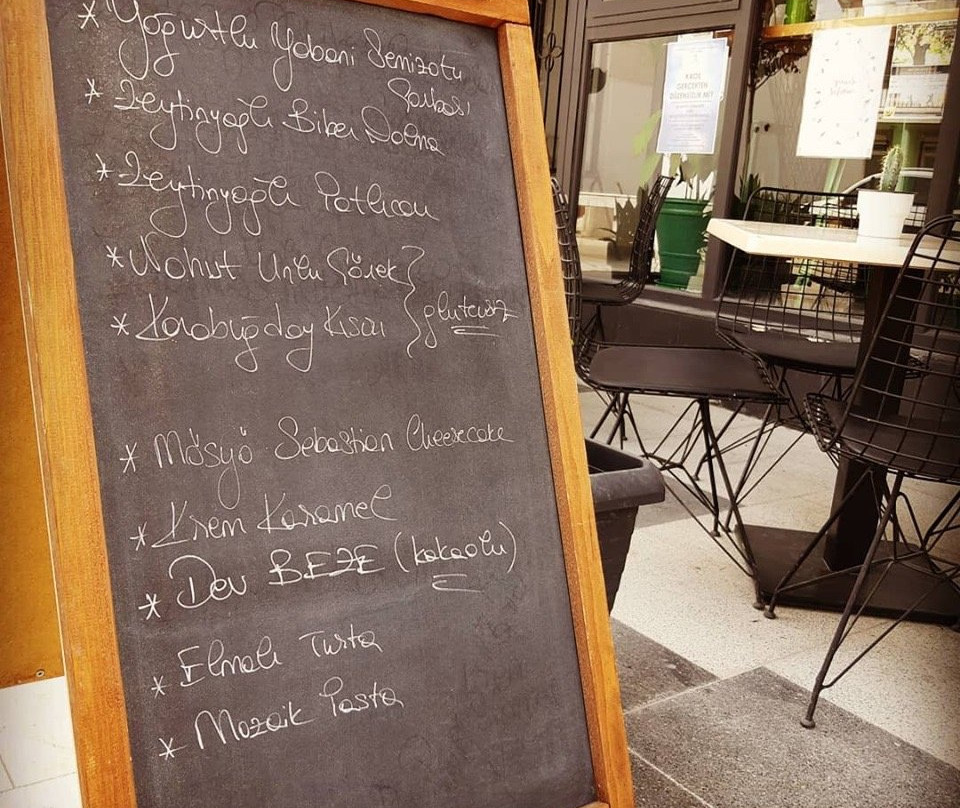 * Yoğurtlu Yabani Semizotu
Çorbası
* Zeytinyağlı Biber Dolma
* Zeytinyağlı Patlıcan
* Nohut Unlu Çörek
* Karabuğday Kısır } glutensiz
* Mösyö Sebastian Cheesecake
* Krem Karamel
* Dev BEZE (kakaolu)
* Elmalı Turta
* Mozaik Pasta